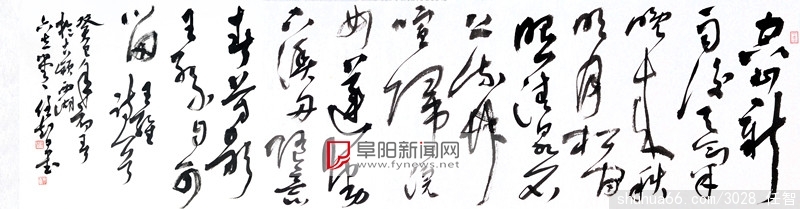 空山新
雨後天氣
晚来秋
明月松间
照清泉石
上流竹
喧归浣
女莲动
下渔舟随意
春芳歇
王孙自可
留 王维诗
癸巳年初春
於古颍西湖
任智
阜阳新闻网
www.fynews.net
shuhua06.com/3028 任智